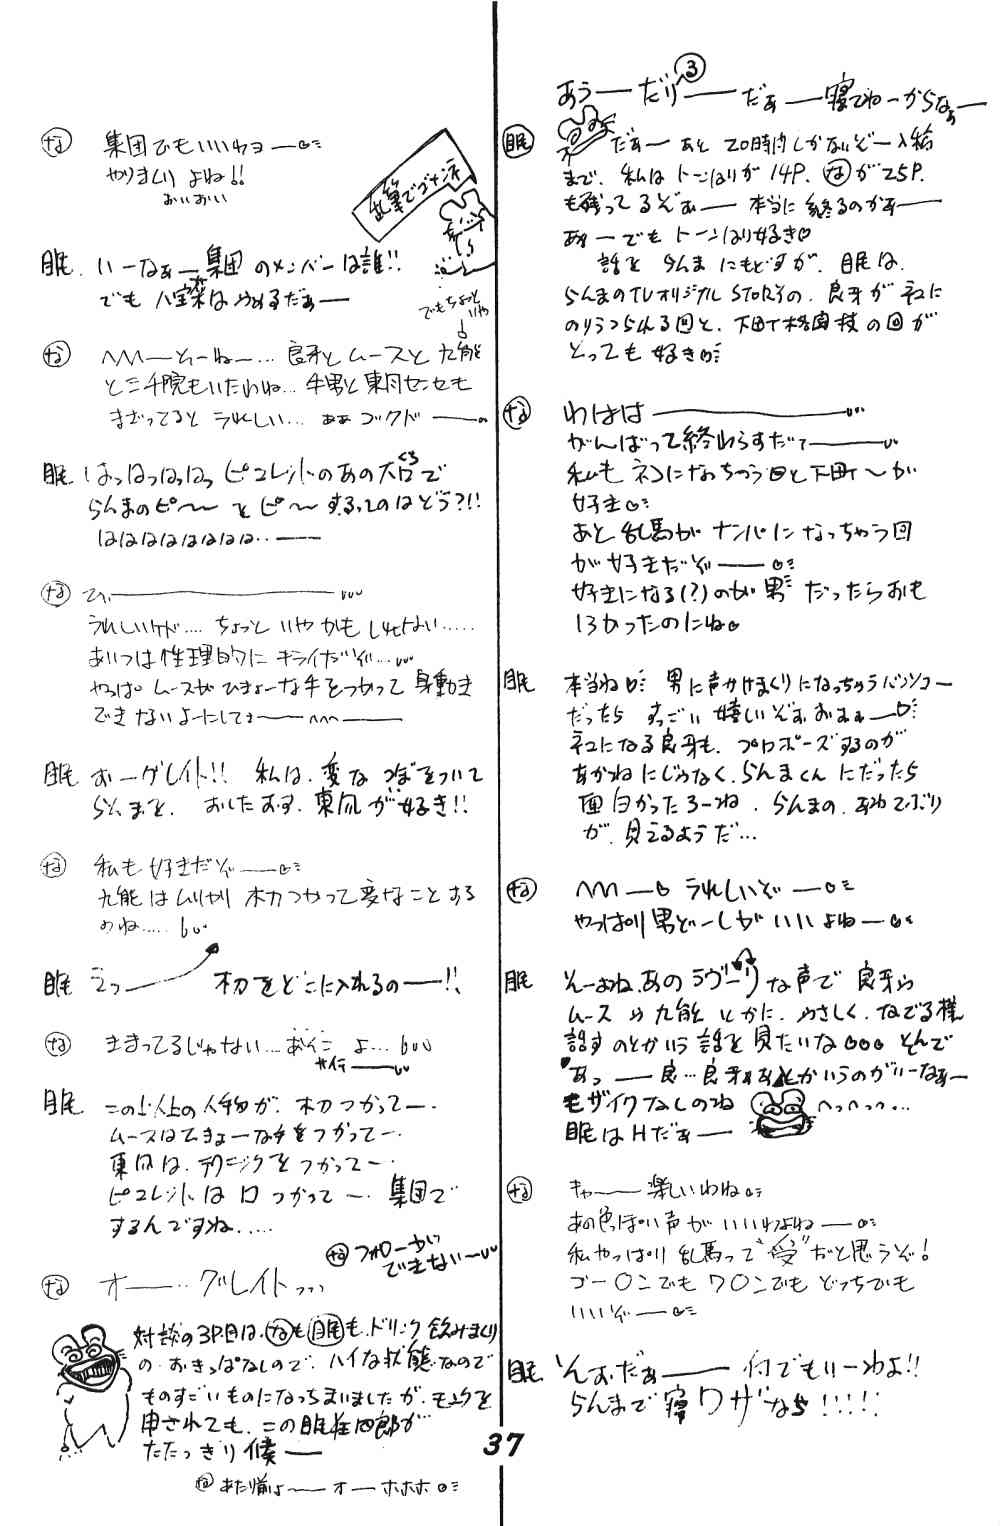 ③
あうーだりーーだぁー寝てねーからなぁー
眠 だぁーあと20時間しかないぞー入稿
まで、私はトーンはりが14P、なが25P.
も残ってるぞぉー 本当に終るのかぁー
あぁーでもトーンはり好き♡
話をらんまにもどすが、眠は、
らんまのTVオリジナルSTORYの、良牙がネコに
のりうつられる回と、下町格闘技の回が
とっても好き♡
な わははー
がんばって終わらすだァー
私もネコになっちゃう回と下町〜が
好き♡
あと乱馬がナンパになっちゃう回
が好きだぞー♡
好きになる(?)のが男だったらおも
しろかったのにね♡
眠 本当ね♡ 男に声かけまくりになっちゃうバンソコー
だったらすっごい嬉しいぞぉおぉぉー♡
ネコになる良牙も、プロポーズするのが
あかねにじゃなく、らんまくんにだったら
面白かったろーね、らんまの、あわてぶり
が、見えるようだ…
な へへへー♡うれしいぞー♡
やっぱり男どーしがいいよねー♡
眠 そーよね、あのラヴーリな声で良牙や
ムースや九能とかに、やさしく、なでる様
話すのとかいう話を見たいな○○○そんで
"あっー良…良牙ぁぁとかいうのがいーなぁー
モザイクなしのね へっへっへっ…
眠はHだぁー
な キャー楽しいわね♡
あの色っぽい声がいいわよねー♡
私やっぱり乱馬って"受"だと思うぞ!
ゴー○ンでもワ○ンでもどっちでも
いいぞー♡
眠 そんぉ、だぁー何でもいーわよ!!
らんまで寝ワザなら!!!!!
な 集団でもいいわヨー♡
やりまくりよね!!
おいおい
乱筆でゴメンネ
眠 いーなぁー集団のメンバーは誰!!
でも八宝菜はやめるだぁー
でもちょっといや
な へへへーそーねー…良牙とムースと九能
と三千院もいたわね…牛男と東風センセも
まざってるとうれしい…ぁぁゴックドー
眠 はっはっはっはっピコレットのあの大口で
らんまのピ〜〜とピ〜〜するってのはどう?!!
はははははははは‥ー
な ひぃー
うれしいけど…ちょっといやかもしれない……
あいつは性理的にキライだぞ…
やっぱムースがひきょーな手をつかって身動き
できないよーにしてョーへへへー
眠 おーグレイト!! 私は、変なつぼをついて
らんまを、おしたおす、東風が好き!!
な 私も好きだぞー♡
九能はムリやり木刀つかって変なことする
のね……
眠 えっー 木刀をどこに入れるのー!!
な きまってるじゃない…あそこよ…
眠 この以上の人物が、木刀つかってー、
ムースはひきょーな手をつかってー、
東風は、テクニックをつかってー、
ピコレットは口つかってー、集団で
するんですね……
な フォローが
できないー
な オー…グレイトッッッ
対談の3P目は、なも眠も、ドリンク飲みまくり
の、おきっぱなしので、ハイな状態なので
ものすごいものになっちまいましたが、モンクを
申されても、この眠狂四郎が
たたっきり候ー
な あたり前よーオーホホホ♡
37